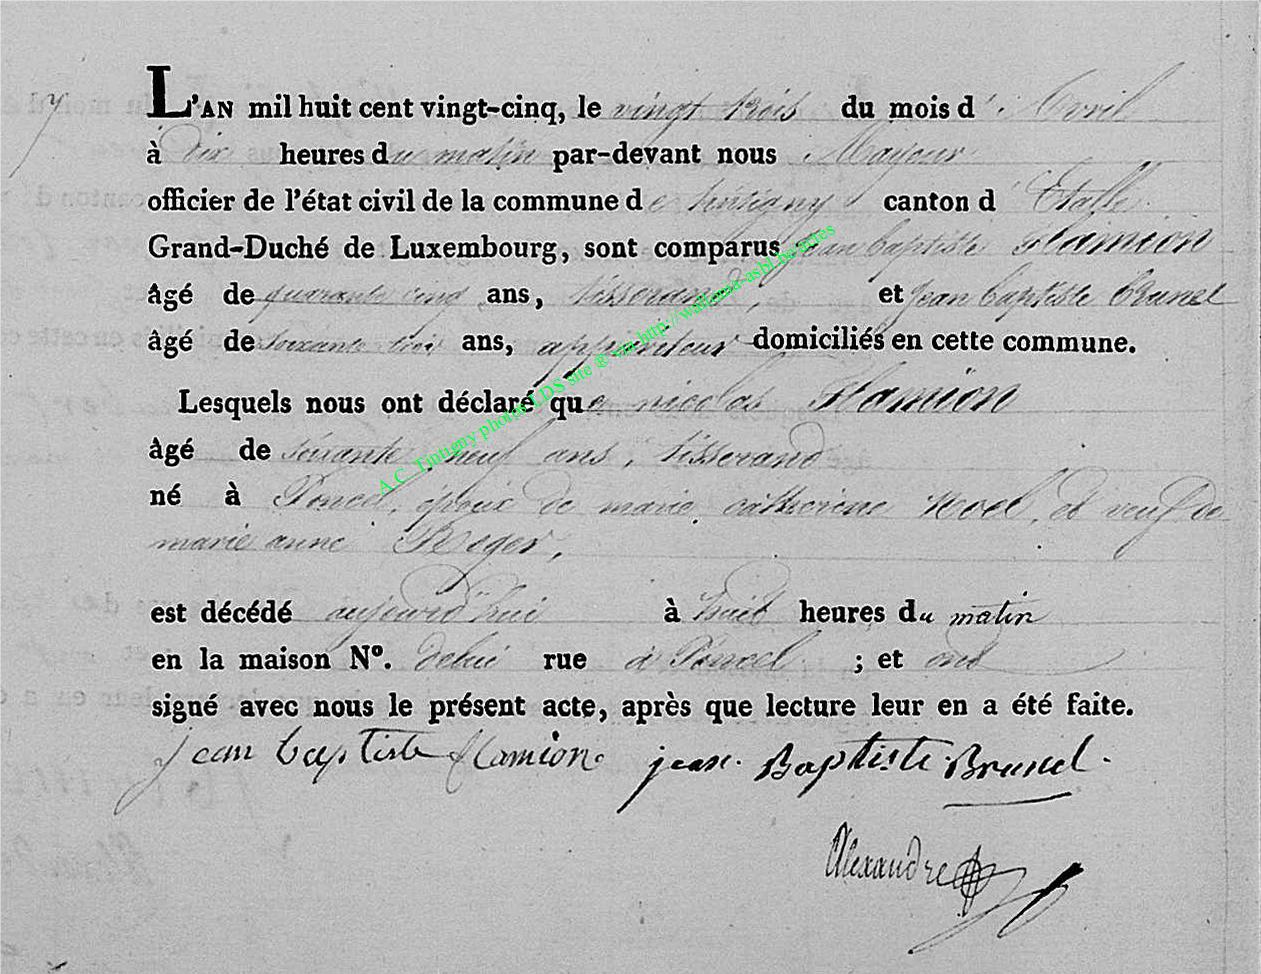 7
L'AN mil huit cent vingt-cinq, le vingt trois du mois d' Avril
à Dix heures du matin par-devant nous Mayeur
officier de l'état civil de la commune de tintigny canton d' Etalle
Grand-Duché de Luxembourg, sont comparus jean baptiste Flamion
âgé de quarante cinq ans, tisserand, et jean baptiste Brunel
âgé de soixante trois ans, appariteur domiciliés en cette commune.
Lesquels nous ont déclaré que nicolas Flamion
âgé de soixante neuf ans, tisserand
né à Poncel, époux de marie catherine Noel, et veuf de
marie anne Reger,
est décédé aujourd'hui à huit heures du matin
en la maison N°. delui rue à Poncel ; et ont
signé avec nous le présent acte, après que lecture leur en a été faite.
jean baptiste flamion jean Baptiste Brunel
Alexandre
A.C. Tintigny photos LDS site ® via http://wallonia-asbl.be/actes